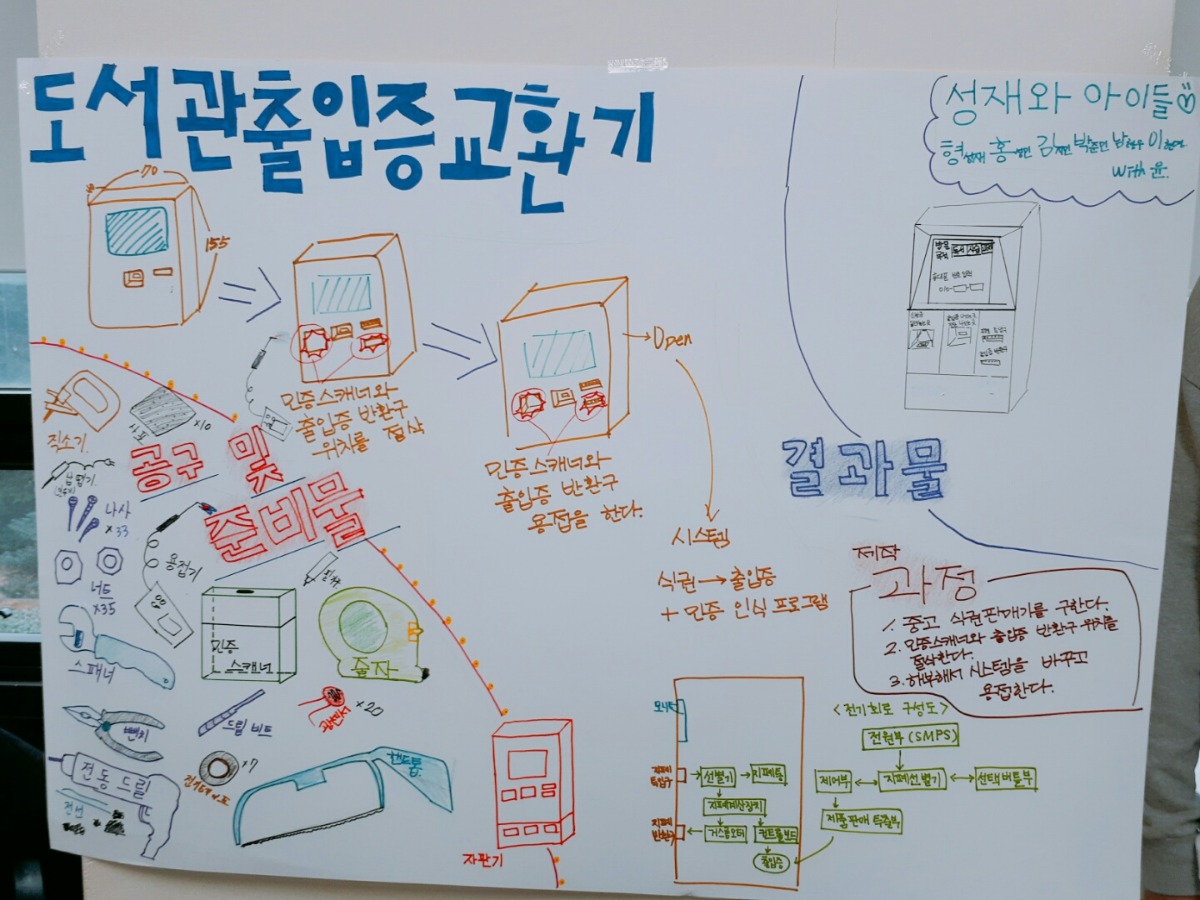 도서관출입증교환기
성재와 아이들
with 윤.
70
155
민증스캐너와
출입증 반환구
위치를 절삭
민증스캐너와
출입증 반환구
용접을 한다.
Open
시스템
식권→출입증
+ 민증 인식 프로그램
공구 및
준비물
직소기
사포
×10
납땜기
나사
×33
너트
×35
용접기
스패너
민증
스캐너
줄자
뺀치
드릴 비트
×20
전동 드릴
×7
핸드톱
전선
자판기
결과물
제작
과정
1. 중고 식권판매기를 구한다.
2. 민증스캐너와 출입증 반환구 위치를
절삭한다.
3. 해부해서 시스템을 바꾸고
용접한다.
<전기회로 구성도>
전원부(SMPS)
제어부
지폐선별기
선택버튼부
제품판매 투출부
모니터
지폐
투입구
선별기
지폐통
지폐계산장치
지폐
반환구
거스름모터
컨트롤보드
출입증